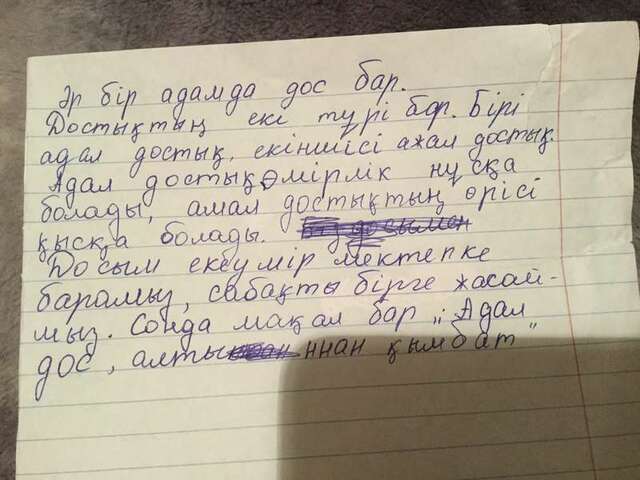 Әр бір адамда дос бар.
Достықтың екі түрі бар. Бірі
адал достық, екіншісі ажал достық.
Адал достық өмірлік нұсқа
болады, амал достықтың өрісі
қысқа болады.
Досым екеумір мектепке
барамыз, сабақты бірге жасай-
мыз. Сонда мақал бар „Адал
дос, алты ннан қымбат"